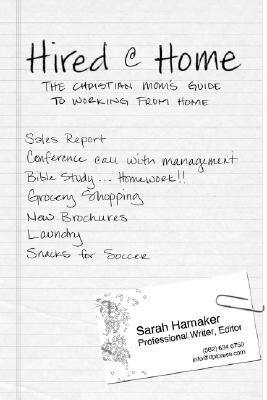 Hired @ Home
THE CHRISTIAN MOM'S GUIDE
TO WORKING FROM HOME
Sales Report
Conference call with management
Bible Study... Homework!!
Grocery Shopping
New Brochures
Laundry
Snacks for Soccer
Sarah Hamaker
Professional Writer, Editor
(562) 634 6750
info@dpipress.com